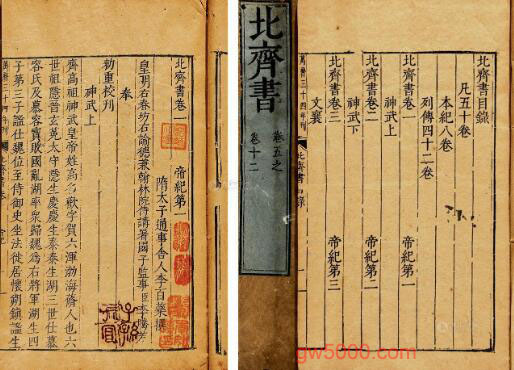 北齊書目錄
凡五十卷
本紀八卷
列傳四十二卷
北齊書卷一 帝紀第一
神武上
北齊書卷二 帝紀第二
神武下
北齊書卷三 帝紀第三
文襄
萬曆三十四年刊
北齊書
卷五之
卷十二
北齊書卷一 帝紀第一
隋太子通事舍人李百藥撰
皇明右春坊右諭德兼翰林院侍講署國子監事臣李騰芳
奉
勑重校刊
神武上
齊高祖神武皇帝姓高名歡字賀六渾渤海蓨人也六
世祖隱晉玄菟太守隱生慶慶生泰泰生湖三世仕慕
容氏及慕容寶敗國亂湖率衆歸魏為右將軍湖生四
子第三子謐仕魏位至侍御史坐法徙居懷朔鎮謐生
萬曆三十四年刊
北齊書卷一
gw5000.com